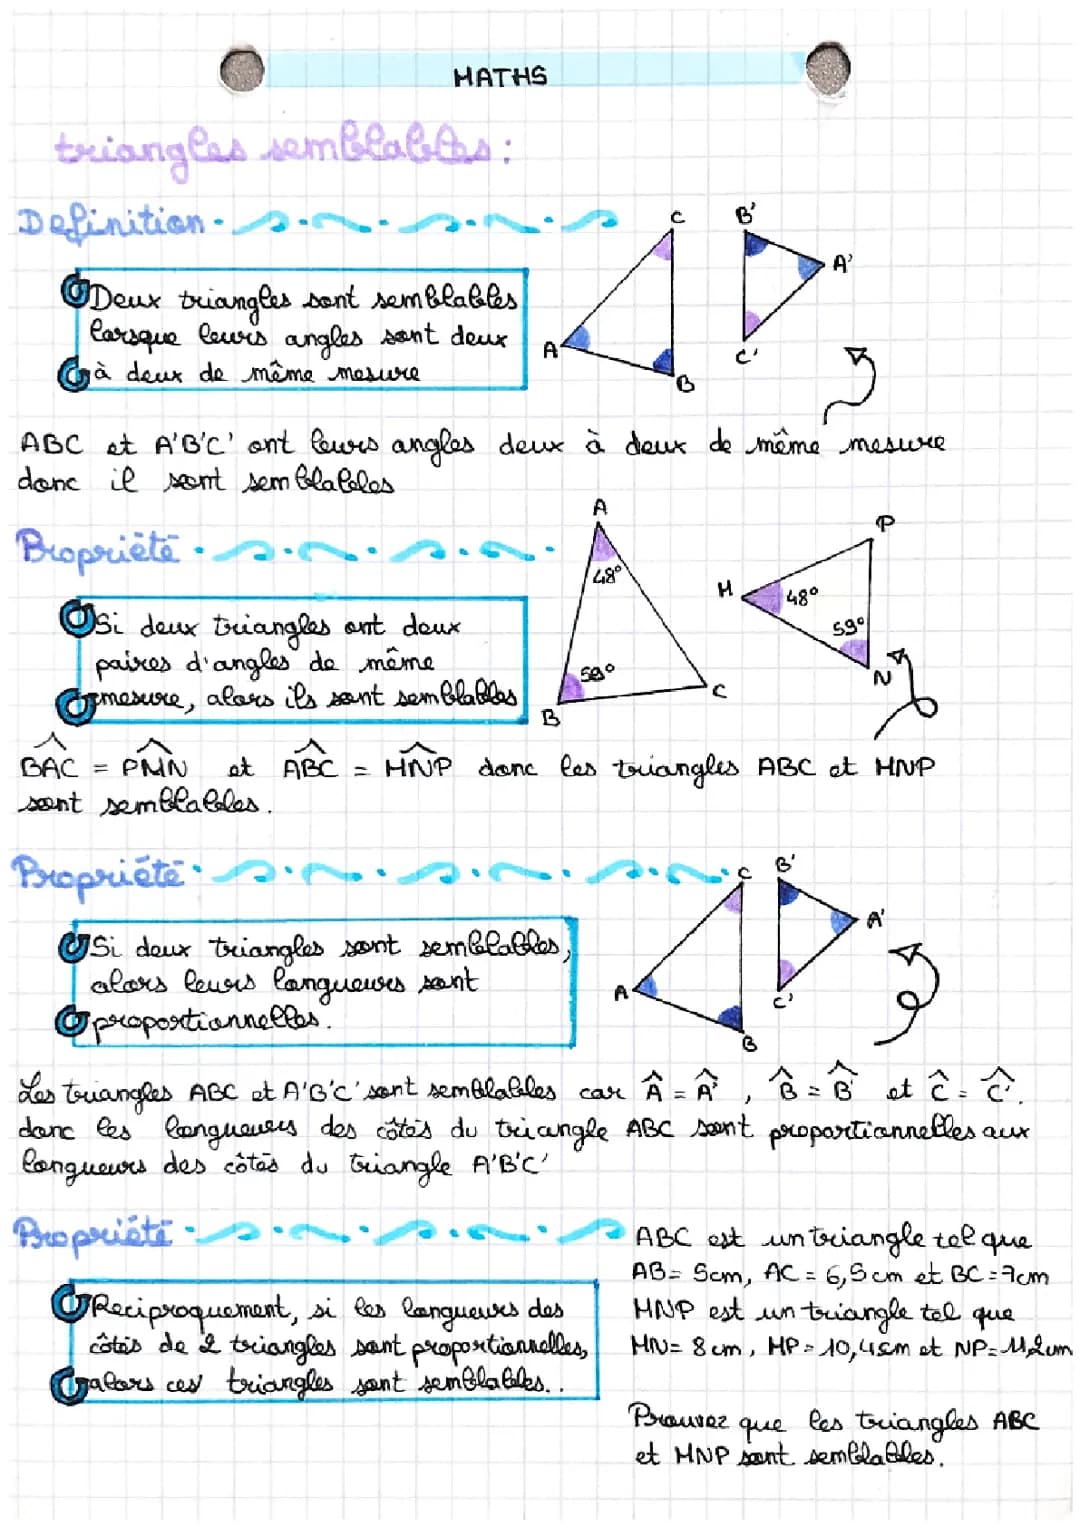 MATHS
triangles semblables :
Definition
Deux triangles sont semblables
lorsque leurs angles sont deux
à deux de même mesure
C
B'
A'
A
B
C'
ABC et A'B'C' ont leurs angles deux à deux de même mesure
donc il sont semblables
Propriété
Si deux triangles ont deux
paires d'angles de même
mesure, alors ils sont semblables
A
48°
59°
B
C
P
M
48°
59°
N
BAC = PMN et ABC = MNP donc les triangles ABC et MNP
sont semblables.
Propriété
Si deux triangles sont semblables,
alors leurs longueurs sont
proportionnelles.
C
B'
A'
A
B
C'
Les triangles ABC et A'B'C' sont semblables car Â = Â', B̂ = B̂' et Ĉ = Ĉ'.
donc les longueurs des côtés du triangle ABC sont proportionnelles aux
longueurs des côtés du triangle A'B'C'
Propriété
Reciproquement, si les longueurs des
côtés de 2 triangles sont proportionnelles,
alors ces triangles sont semblables..
ABC est un triangle tel que
AB = 5cm, AC = 6,5cm et BC = 7cm
MNP est un triangle tel que
MN = 8cm, MP = 10,4cm et NP = 11,2cm
Prouvez que les triangles ABC
et MNP sont semblables.